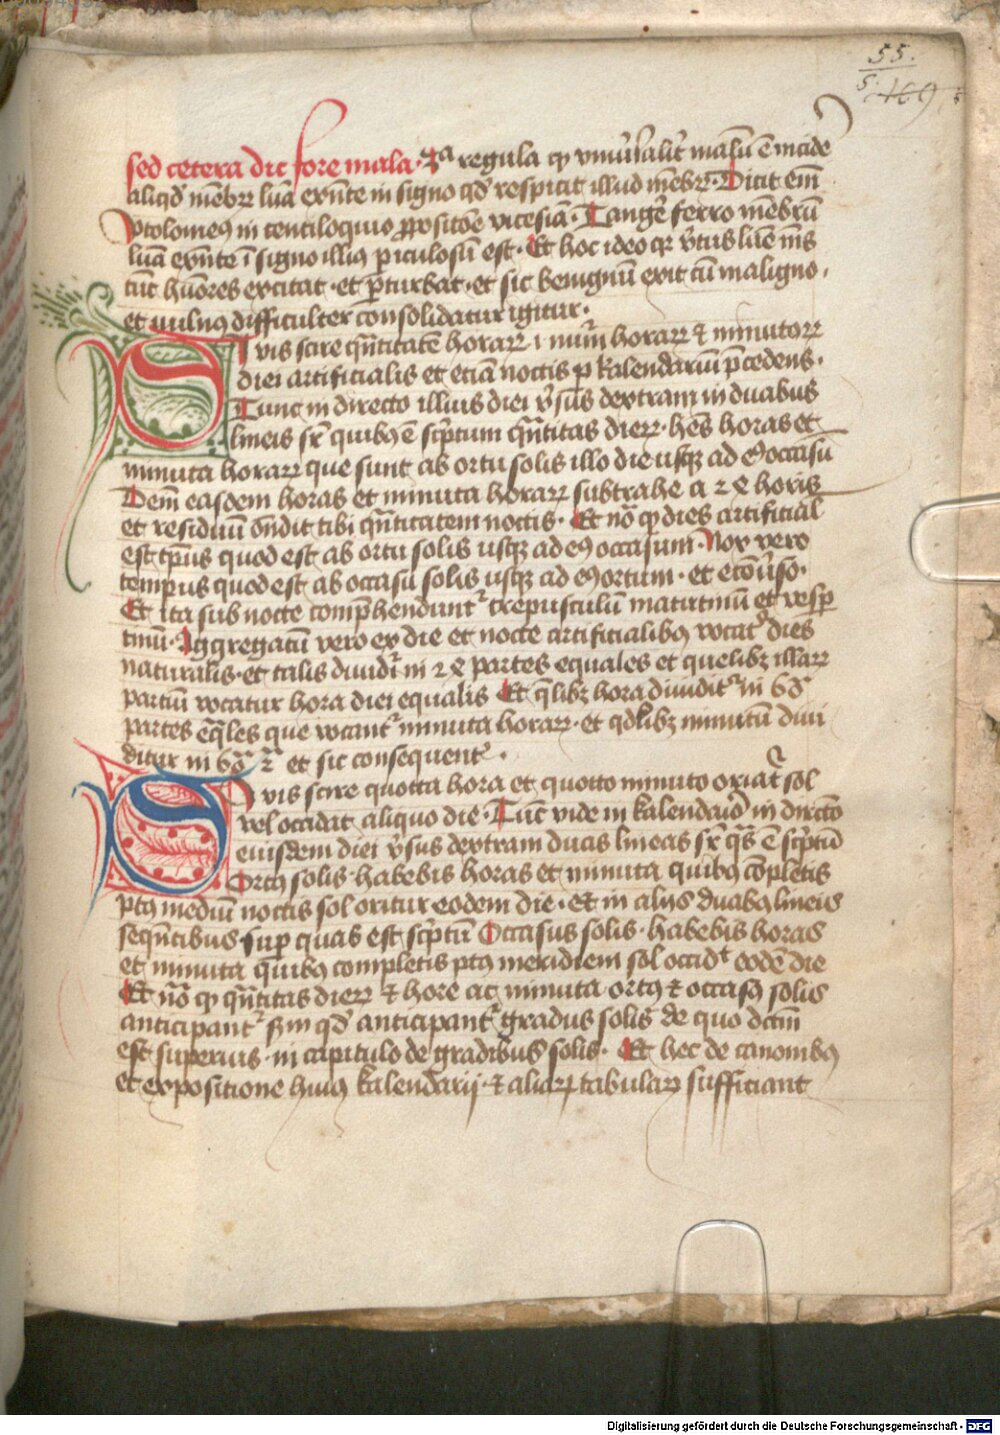 55.
5. 169
sed cetera dic fore mala. 4ª regula qꝫ vniu̾salit̾ malū ē incide
aliqd̾ mēbrꝝ lūa exn̄te in signo qd̾ respicit illud mēbrꝫ. Dicit em̄
ptolomeꝰ in centiloquio ꝓpositōe vicesīa. Tange̾ ferro mēbrū
lūa exn̄te ī signo illiꝰ piculosū est. Et hoc ideo qꝛ v̾tus lūe
tūc hūores excitat et p̄turbat. et sic benignū exit cū maligno.
et uulnꝰ difficulter consolidatur igitur.
SI vis scire qn̄titatē horaꝝ i nūm̄ horaꝝ ⁊ minutoꝝ
diei artificialis et etiā noctis p kalendariū p̄cedens.
Tunc in directo illius diei v̾sus dextram in duabus
lineis sr̄ quibꝰ ē sc̾ptum qn̄titas dieꝝ. hēs horas et
minuta horaꝝ que sunt ab ortu solis illo die usqꝫ ad eꝰ occasū
Dem̄ easdem horas et minuta horaꝝ subtrahe a 24 horis
et residuū on̄dit tibi qn̄titatem noctis. Et nō qꝫ dies artificial̾
est tp̄us quod est ab ortu solis usqꝫ ad eꝰ occasum. Nox vero
tempus quod est ab occasu solis usqꝫ ad eꝰ ortum. et ecōu̾so.
Et ita sub nocte comp̄hendunt᷑ crepusculū matutinū et vesp
tinū. Aggregatū vero ex die et nocte artificialibꝰ vocat᷑ dies
naturalis. et talis diuidi᷑ in 24 partes equales et quelibꝫ illaꝝ
partiū vocatur hora diei equalis Et q̄libꝫ hora diuidit᷑ in 60ª
partes eq̄les que vocant᷑ minuta horaꝝ. et qd̾libꝫ minutū diui
ditur in 60ª 2ª et sic consequent̾.
SI vis scire quotta hora et quotto minuto oriat᷑ sol
vel occidat aliquo die. Tūc vide in kalendaīo in dir̄cto
eiusdem diei v̾sus dextram duas lineas sr̄ qᵃs ē sc̾ptū
Ortꝰ solis. habebis horas et minuta quibꝰ cōpletis
ptꝰ mediū noctis sol oritur eodem die. et in alijs duabꝰ lineis
seqn̄tibus sup quas est sc̾ptū Occasus solis. habebis horas
et minuta quibꝰ completis ptꝰ meridiem sol occidᵗ eodē die
Et nō qꝫ qn̄titas dieꝝ ⁊ hore ac minuta ortꝰ ⁊ occasꝰ solis
anticipant᷑ sꝫm qd̾ anticipant᷑ gradus solis de quo dc̄m
est superius. in capitulo de gradibus solis. Et hec de canonibꝰ
et expositione huiꝰ kalendarij ⁊ aliaꝝ tabulaꝝ sufficiant
Digitalisierung gefördert durch die Deutsche Forschungsgemeinschaft - DFG